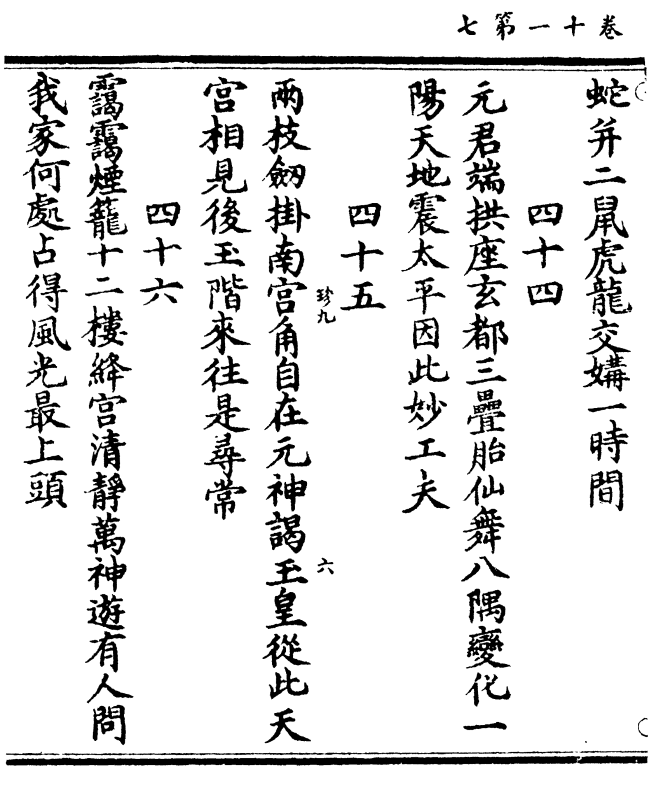 卷十一第七
蛇并二鼠虎龍交媾一時間
四十四
元君端拱座玄都三疊胎仙舞八隅變化一
陽天地震太平因此妙工夫
四十五
珍九
六
兩枝劒掛南宫角自在元神謁玉皇從此天
宫相見後玉階來往是尋常
四十六
靄靄煙籠十二樓絳宫清靜萬神遊有人問
我家何處占得風光最上頭